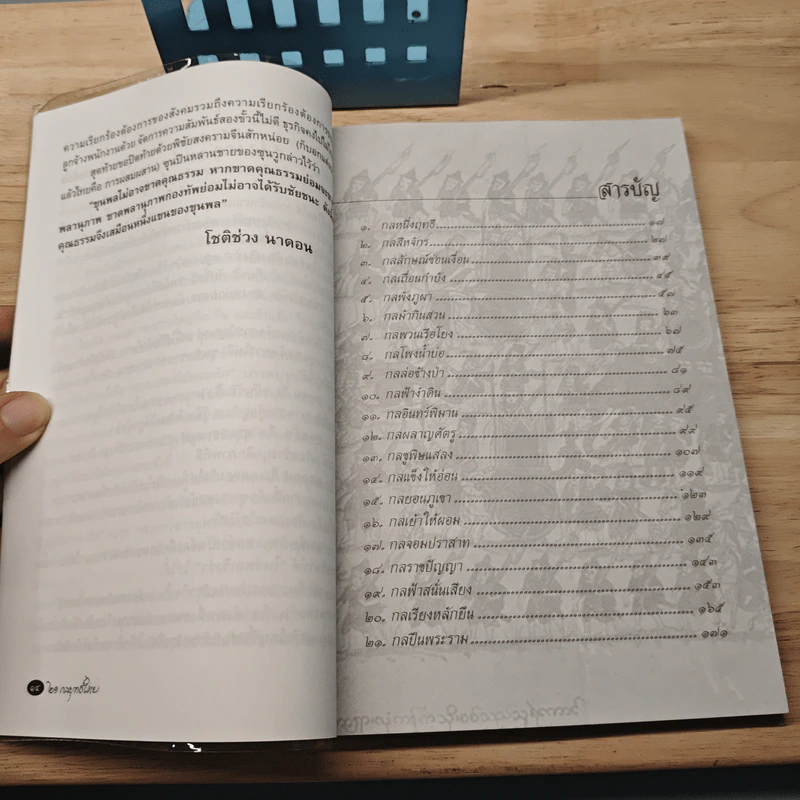 ความเรียกร้องต้องการของสังคมรวมถึงความเรียกร้องต้องการ
ลูกจ้างพนักงานด้วย จัดการความสัมพันธ์สองขั้วนี้ไม่ดี ธุรกิจคงไปไม่
สุดท้ายขอปิดท้ายด้วยพิชัยสงครามจีนสักหน่อย (ก็บอก
แล้วไทยคือ การผสมผสาน) ซุนปินหลานชายของซุนวูกล่าวไว้ว่า
“ขุนพลไม่อาจขาดคุณธรรม หากขาดคุณธรรมย่อม
พลานุภาพ ขาดพลานุภาพกองทัพย่อมไม่อาจได้รับชัยชนะ
คุณธรรมจึงเสมือนหนึ่งแขนของขุนพล”
โชติช่วง นาดอน
๑๔ ๒๑ กลยุทธ์ไทย
สารบัญ
๑. กลหนึ่งฤทธี ๑๗
๒. กลสีหจักร ๒๗
๓. กลลักษณ์ซ่อนเงื่อน ๓๙
๔. กลเถื่อนกำบัง ๔๕
๕. กลพังภูผา ๕๗
๖. กลม้ากินสวน ๖๓
๗. กลพวนเรือโยง ๖๗
๘. กลโพงน้ำบ่อ ๗๕
๙. กลล่อช้างป่า ๘๑
๑๐. กลฟ้างำดิน ๘๙
๑๑. กลอินทร์พิมาน ๙๕
๑๒. กลผลาญศัตรู ๙๙
๑๓. กลชูพิษแสลง ๑๐๗
๑๔. กลแข็งให้อ่อน ๑๑๙
๑๕. กลยอนภูเขา ๑๒๓
๑๖. กลเย้าให้ผอม ๑๒๙
๑๗. กลจอมปราสาท ๑๓๕
๑๘. กลราชปัญญา ๑๔๓
๑๙. กลฟ้าสนั่นเสียง ๑๕๓
๒๐. กลเรียงหลักยืน ๑๖๕
๒๑. กลปืนพระราม ๑๗๑